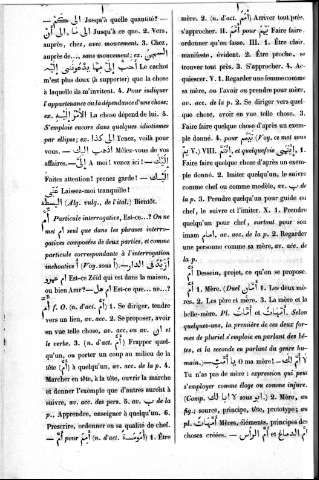 الى كم — Jusqu'à quelle quantité? —
الى ان Jusqu'à ce que. 2. Vers,
auprès, chez, avec mouvement. 3. Chez,
auprès de..., sans mouvement; ex.
السجن احب الى مما يدعوننى اليه Le cachot
m'est plus doux (à supporter) que la chose
à laquelle ils m'invitent. 4. Pour indiquer
l'appartenance ou la dépendance d'une chose; ex.
الامر اليه La chose dépend de lui. 5.
S'emploie encore dans quelques idiotismes
par ellipse; ex. Tenez, voilà pour
vous. اذهب اليك Mêlez-vous de vos
affaires. — الى A moi! venez ici! — اليك
Faites attention! prenez garde! — اليك
عنى Laissez-moi tranquille!
(Alg. vulg., d'ital.) Bientôt.
ام Particule interrogative, Est-ce...? On ne
met ام seul que dans les phrases interro-
gatives composées de deux parties, et comme
particule correspondante à l'interrogation
inchoative أ (Voy. sous أ). أزيد فى الدار
ام عمرو Est-ce Zéïd qui est dans la maison,
ou bien Amr? — ام هل Est-ce que... ne...?
أم f. O. (n. d'act. أم) 1. Se diriger, tendre
vers un lieu, av. acc. 2. Se proposer, avoir
en vue telle chose, av. acc. ou av. ان et
le verbe. 3. (n. d'act. أم) Frapper quel-
qu'un, ou porter un coup au milieu de la
tête (أم) à quelqu'un, av. acc. de la p. 4.
Marcher en tête, à la tête, ouvrir la marche
et donner l'exemple que d'autres auront à
suivre, av. acc. des pers. 5. av. ب de la
p., Apprendre, enseigner à quelqu'un. 6.
Prescrire, ordonner en sa qualité de chef.
— أم pour (n. d'act. أمومة) 1. Être
mère. 2. (n. d'act. أمم) Arriver tout près,
s'approcher. II. أمم pour Faire faire,
ordonner qu'on fasse. III. 1. Être clair,
manifeste, évident. 2. Être proche, se
trouver tout près. 3. S'approcher. 4. Ac-
quiescer. V. 1. Regarder une femme comme
sa mère, ou l'avoir ou prendre pour mère,
av. acc. de la p. 2. Se diriger vers quel-
que chose, avoir en vue telle chose. 3.
Faire faire quelque chose d'après un exem-
ple donné. 4. pour تيمم (Voy. ce mot sous
يم V.) VIII. ائتم, et quelquefois ايتمى, 1.
Faire faire quelque chose d'après un exem-
ple donné. 2. Imiter quelqu'un, le suivre
comme chef ou comme modèle, av. ب de
la p. 3. Prendre quelqu'un pour guide ou
chef, le suivre et l'imiter. X. 1. Prendre
quelqu'un pour chef, surtout pour son
imam امام, av. acc. de la p. 2. Regarder
une personne comme sa mère, av. acc. de
la p.
أم Dessein, projet, ce qu'on se propose.
أم 1. Mère. (Duel أمان 1. Les deux mè-
res. 2. Les père et mère. 3. La mère et la
belle-mère. Pl. أمات et أمهات. Selon
quelques-uns, la première de ces deux for-
mes de pluriel s'emploie en parlant des bê-
tes, et la seconde en parlant du genre hu-
main.) — يا أمت O ma mère! — لا أم لك
Tu n'as pas de mère: expression qui peut
s'employer comme éloge ou comme injure.
(Comp. لا ابا لك sous ابو). 2. Mère, au
fig.: source, principe, tête, prototype; au
pl. أمهات Mères, éléments, principes des
choses créées. — أم الراس et أم الدماغ